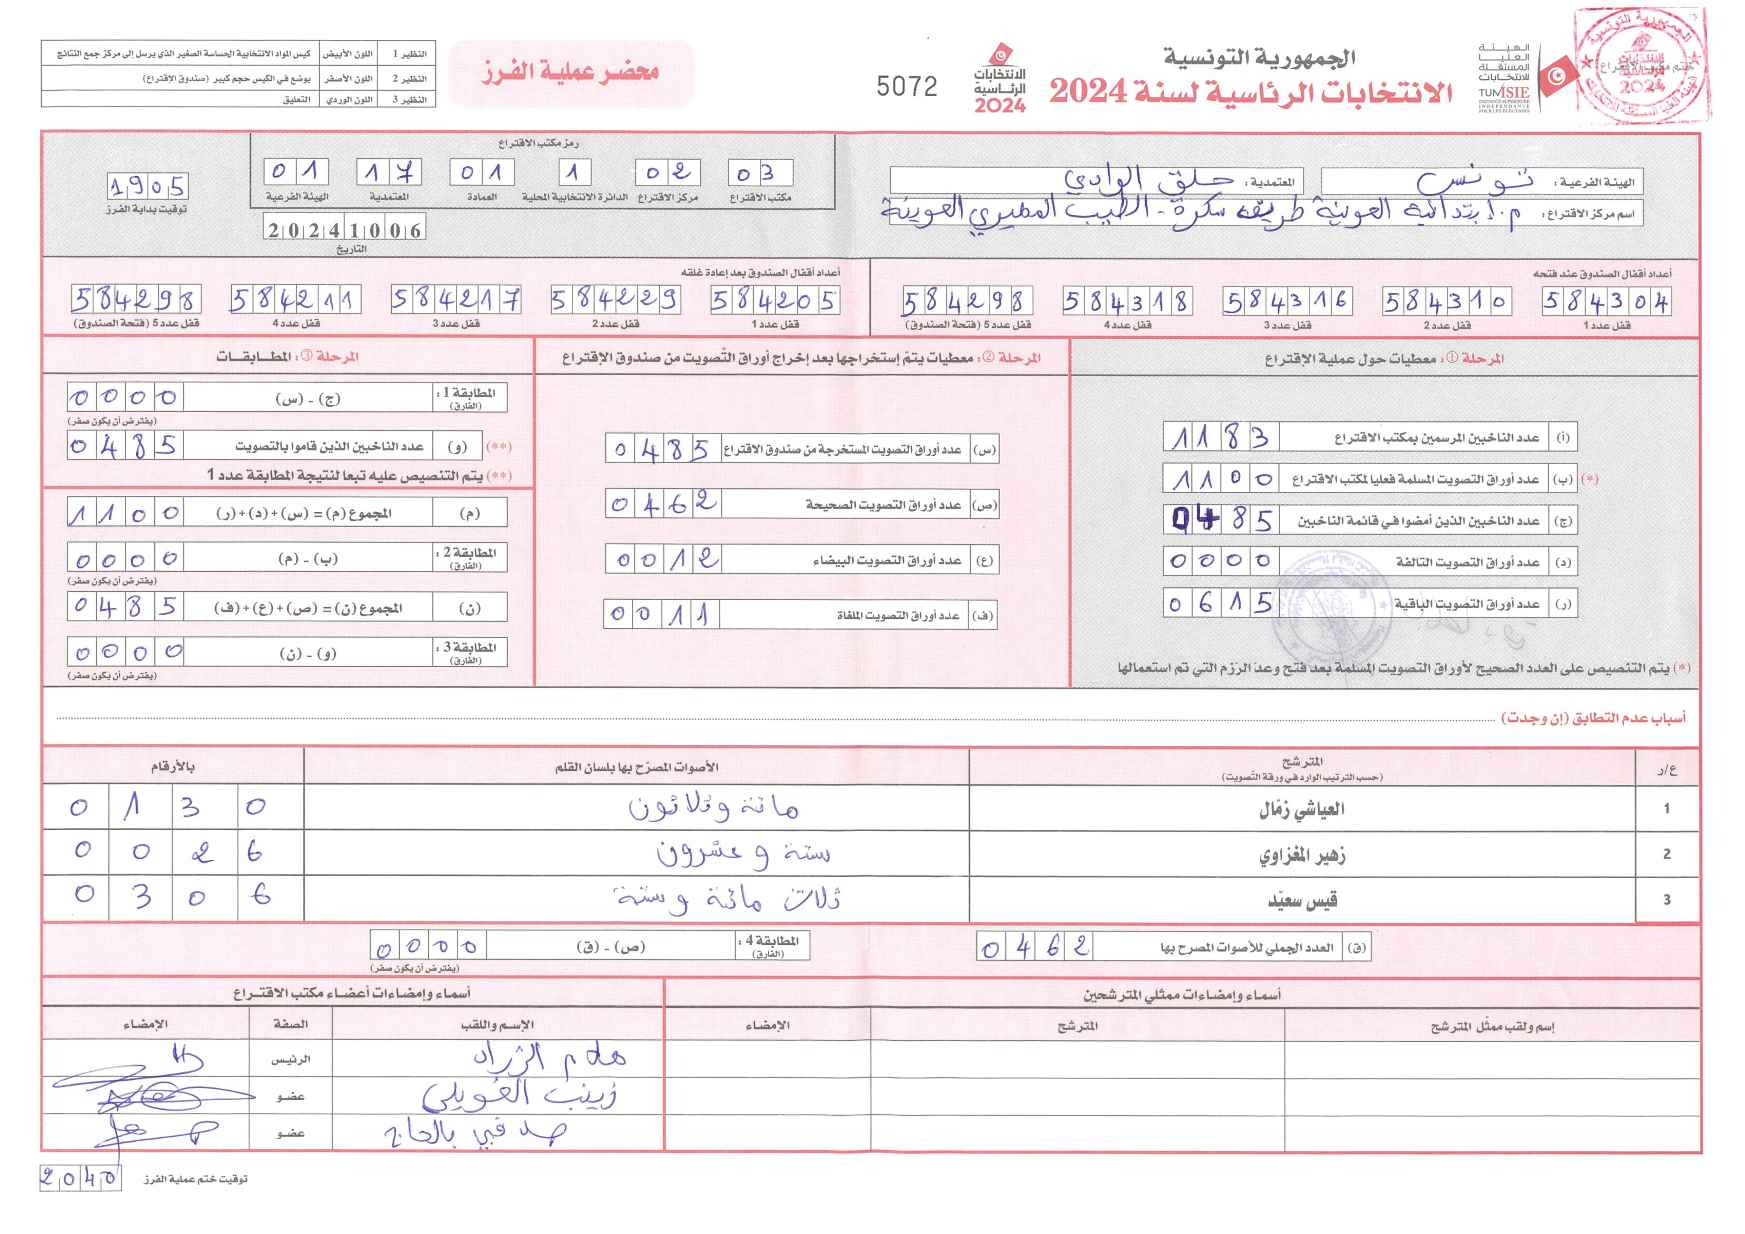 الجمهورية التونسية
الانتخابات الرئاسية لسنة 2024
الهيئة العليا المستقلة للانتخابات
TUNISIE
الانتخابات الرئاسية 2024
5072
محضر عملية الفرز
النظير 1 اللون الأبيض كيس المواد الانتخابية الحساسة الصغير الذي يرسل إلى مركز جمع النتائج
النظير 2 اللون الأصفر يوضع في الكيس حجم كبير (صندوق الإقتراع)
النظير 3 اللون الوردي التعليق
ختم مكتب الاقتراع
الهيئة الفرعية: تونس المعتمدية: حلق الوادي
اسم مركز الاقتراع: م. ابتدائية العوينة طريق سكرة - الطيب المهيري العوينة
رمز مكتب الاقتراع
03 02 1 01 17 01
مكتب الاقتراع مركز الاقتراع الدائرة الانتخابية المحلية العمادة المعتمدية الهيئة الفرعية
20241006
التاريخ
1905
توقيت بداية الفرز
أعداد أقفال الصندوق عند فتحه
584304 584310 584316 584318 584298
قفل عدد 1 قفل عدد 2 قفل عدد 3 قفل عدد 4 قفل عدد 5 (فتحة الصندوق)
أعداد أقفال الصندوق بعد إعادة غلقه
584205 584229 584217 584211 584298
قفل عدد 1 قفل عدد 2 قفل عدد 3 قفل عدد 4 قفل عدد 5 (فتحة الصندوق)
المرحلة ①: معطيات حول عملية الإقتراع
(أ) عدد الناخبين المرسمين بمكتب الاقتراع 1183
(*) (ب) عدد أوراق التصويت المسلمة فعليا لمكتب الاقتراع 1100
(ج) عدد الناخبين الذين أمضوا في قائمة الناخبين 0485
(د) عدد أوراق التصويت التالفة 0000
(ر) عدد أوراق التصويت الباقية 0615
(*) يتم التنصيص على العدد الصحيح لأوراق التصويت المسلمة بعد فتح وعد الرزم التي تم استعمالها
المرحلة ②: معطيات يتم إستخراجها بعد إخراج أوراق التصويت من صندوق الإقتراع
(س) عدد أوراق التصويت المستخرجة من صندوق الاقتراع 0485
(ص) عدد أوراق التصويت الصحيحة 0462
(ع) عدد أوراق التصويت البيضاء 0012
(ف) عدد أوراق التصويت الملغاة 0011
المرحلة ③: المطابقات
المطابقة 1: (الفارق) (ج) - (س) 0000
(يفترض أن يكون صفر)
(**) (و) عدد الناخبين الذين قاموا بالتصويت 0485
(**) يتم التنصيص عليه تبعا لنتيجة المطابقة عدد 1
(م) المجموع (م) = (س) + (د) + (ر) 1100
المطابقة 2: (الفارق) (ب) - (م) 0000
(يفترض أن يكون صفر)
(ن) المجموع (ن) = (ص) + (ع) + (ف) 0485
المطابقة 3: (الفارق) (و) - (ن) 0000
(يفترض أن يكون صفر)
أسباب عدم التطابق (إن وجدت)
ع/ر المترشح (حسب الترتيب الوارد في ورقة التصويت) الأصوات المصرّح بها بلسان القلم بالأرقام
1 العياشي زمّال مائة وثلاثون 0130
2 زهير المغزاوي ستة وعشرون 0026
3 قيس سعيّد ثلاث مائة وستة 0306
(ق) العدد الجملي للأصوات المصرح بها 0462
المطابقة 4: (الفارق) (ص) - (ق) 0000
(يفترض أن يكون صفر)
أسماء وإمضاءات ممثلي المترشحين
إسم ولقب ممثّل المترشح المترشح الإمضاء
أسماء وإمضاءات أعضاء مكتب الاقتراع
الإسم واللقب الصفة الإمضاء
الزراد الرئيس
زينب الغويلي عضو
صدقي بالحاج عضو
توقيت ختم عملية الفرز 2040